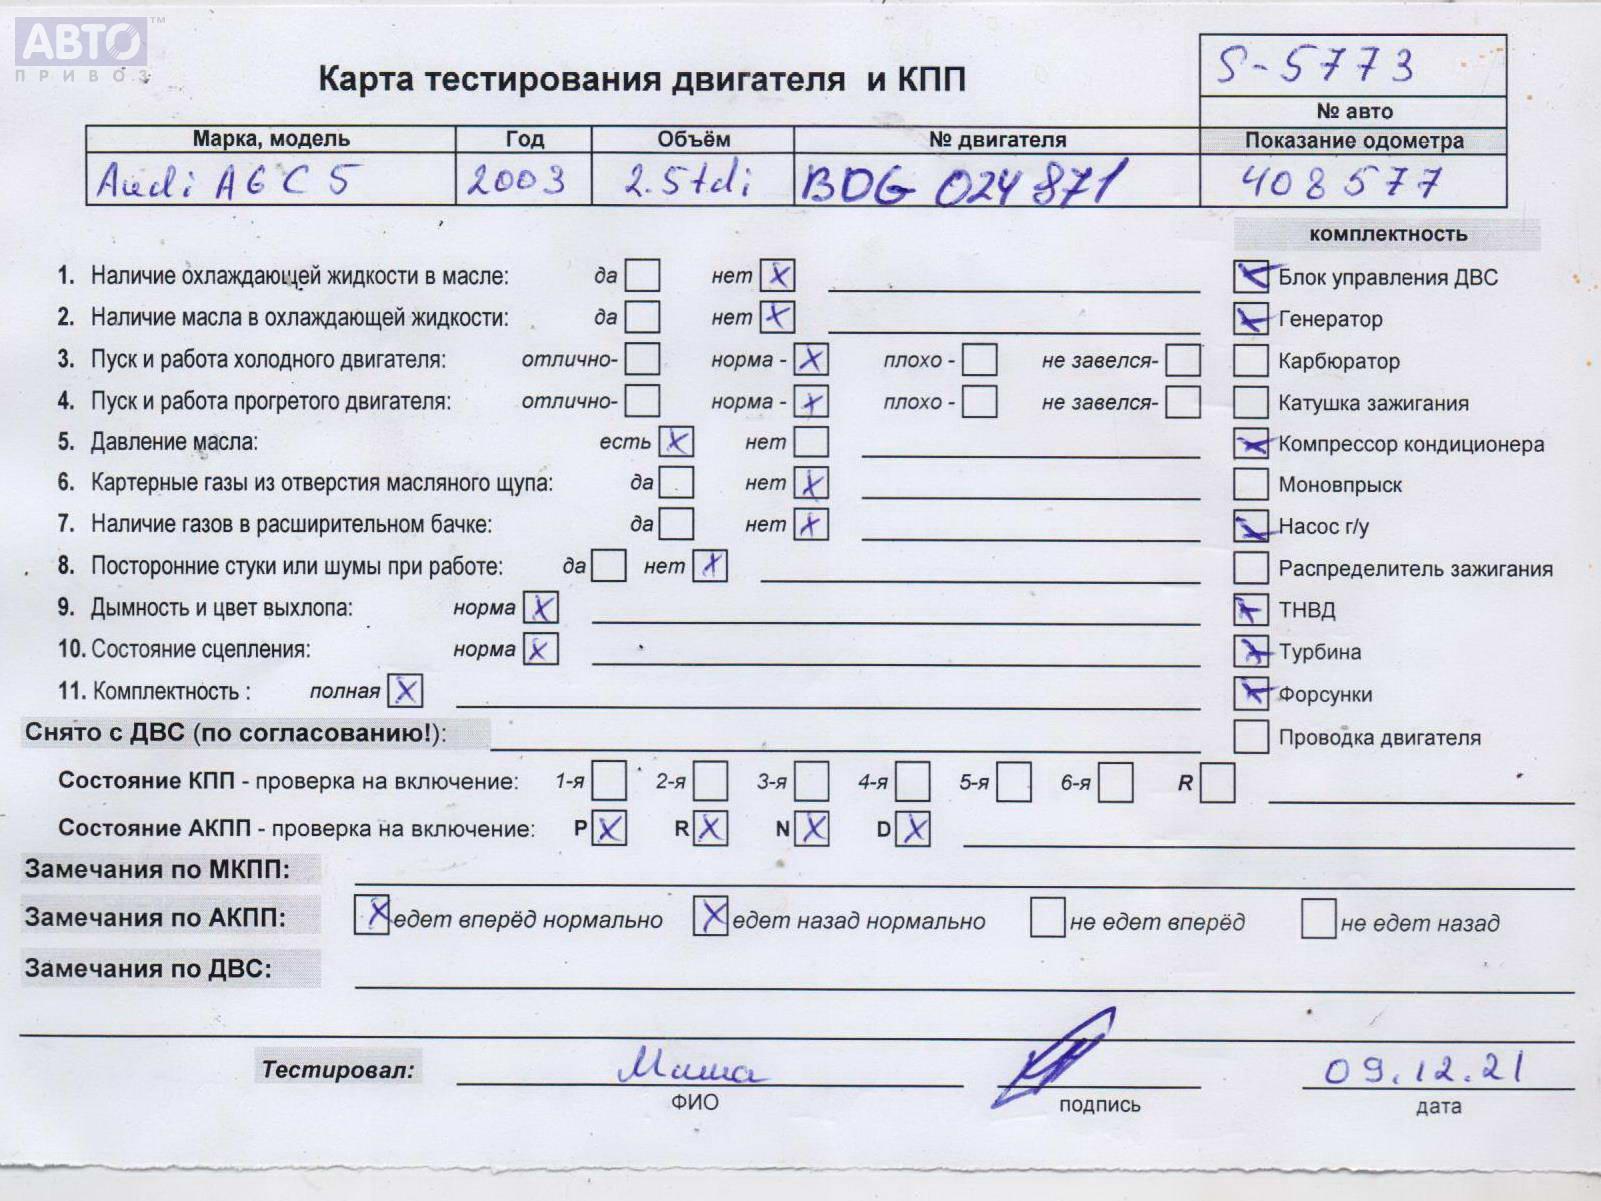 АВТО™
ПРИВОЗ
S-5773
Карта тестирования двигателя и КПП
№ авто
Марка, модель Год Объём № двигателя Показание одометра
Audi A6 C5 2003 2.5tdi BDG 024871 408577
комплектность
1. Наличие охлаждающей жидкости в масле: да нет X
Блок управления ДВС
2. Наличие масла в охлаждающей жидкости: да нет X
Генератор
3. Пуск и работа холодного двигателя: отлично- норма - X плохо - не завелся-
Карбюратор
4. Пуск и работа прогретого двигателя: отлично- норма - X плохо - не завелся-
Катушка зажигания
5. Давление масла: есть X нет
Компрессор кондиционера
6. Картерные газы из отверстия масляного щупа: да нет X
Моновпрыск
7. Наличие газов в расширительном бачке: да нет X
Насос г/у
8. Посторонние стуки или шумы при работе: да нет X
Распределитель зажигания
9. Дымность и цвет выхлопа: норма X
ТНВД
10. Состояние сцепления: норма X
Турбина
11. Комплектность : полная X
Форсунки
Снято с ДВС (по согласованию!):
Проводка двигателя
Состояние КПП - проверка на включение: 1-я 2-я 3-я 4-я 5-я 6-я R
Состояние АКПП - проверка на включение: P X R X N X D X
Замечания по МКПП:
Замечания по АКПП: X едет вперёд нормально X едет назад нормально не едет вперёд не едет назад
Замечания по ДВС:
Тестировал: Миша 09.12.21
ФИО подпись дата